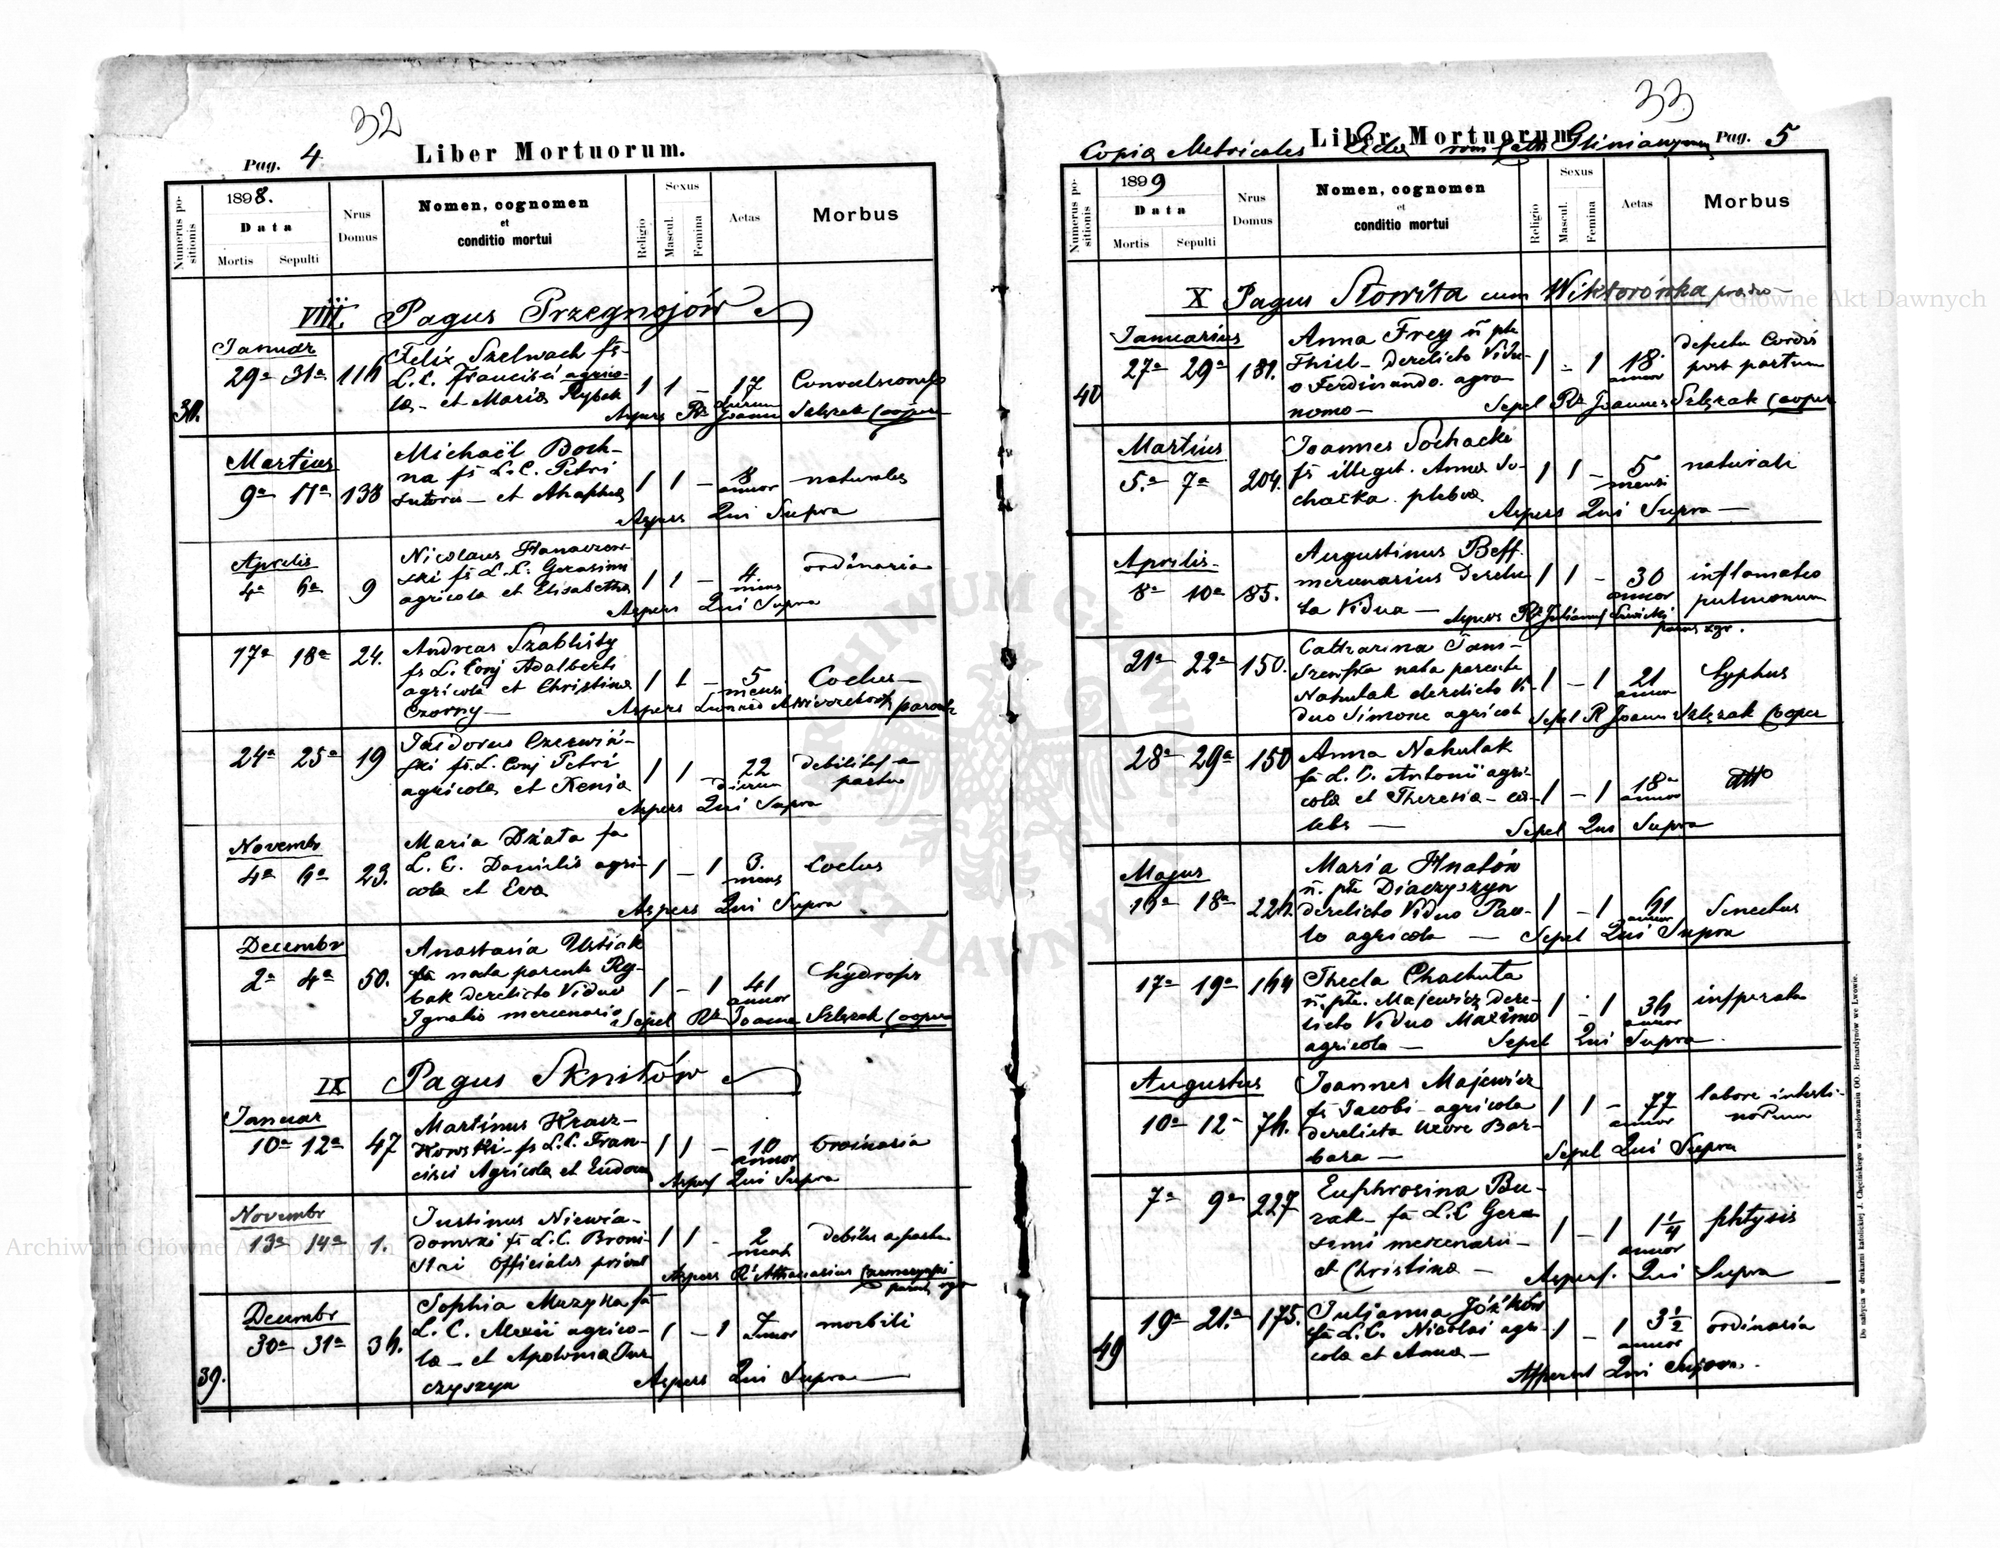 32
Pag. 4 Liber Mortuorum.
Numerus positionis
1898.
Data
Mortis Sepulti
Nrus Domus
Nomen, cognomen
et
conditio mortui
Religio
Sexus
Mascul.
Femina
Aetas
Morbus
VIII. Pagus Przegnojów
Januar
29a 31a 116
Felix Szelwach fs
L.C. Francisci agrico-
lae et Maria Rybak
1 1 - 17 dierum
Aspers Rs Joann Szlęzak Cooper
Martius
9a 11a 138
Michaël Boch-
na fs L.C. Petri
sutoris et Ahaphia
1 1 - 8 annor naturales
Aspers Qui Supra
Aprilis
4a 6a 9
Nicolaus Hanaczow-
ski fs L.C. Gerasimi
agricola et Elisabetha
1 1 - 4 mens ordinaria
Aspers Qui Supra
17a 18a 24.
Andreas Szablisty
fs L. Conj Adalberti
agricola et Christina
Czorny
1 1 - 5 mensi
Aspers
24a 25a 19
Isidorus Czerwiń-
ski fs. L. Conj Petri
agricola et Xenia
1 1 - 22 dierum debilit a partu
Aspers Qui Supra
Novembr
4a 6a 23.
Maria Dziata fa
L. C. Danielis agri-
cola et Eva
1 - 1 3. mens
Aspers Qui Supra
Decembr
2a 4a 50.
Anastasia Ustiak
fa nata parente Ry-
bak derelicto Viduo
Ignatio mercenario
1 - 1 41 annor hydrops
Sepel Rs Joann Szlęzak Cooper
IX Pagus Sknitów
Januar
10a 12a 47
Martinus Krasz-
kowski fs L.C. Fran-
cisci Agricola et Eudoxia
1 1 - 10 annor Ordinaria
Aspers Qui Supra
Novembr
13a 14a 1.
Justinus Niewia-
domski fs L.C. Broni-
slai Officiales privat
1 1 - 2 mens debilis a partu
Aspers Rs Athanasius
Decembr
30a 31a 36.
Sophia Muzyka fa
L. C. Alexii agrico-
la et Apolonia Jur-
czyszyn
1 - 1 7 annor morbili
39. Aspers Qui Supra
33
Copia Metricales Liber Mortuorum. Pag. 5
Numerus positionis
1899
Data
Mortis Sepulti
Nrus Domus
Nomen, cognomen
et
conditio mortui
Religio
Sexus
Mascul.
Femina
Aetas
Morbus
X Pagus Słowita cum Wiktorówka
Januarius
40 27a 29a 181.
Anna Frey
Thiel derelicto Vidu-
o Ferdinando agro-
nomo
1 - 1 18 annor defectu Cordis
post partum
Sepel Rs Joannes Szlęzak Cooper
Martius
5a 7a 204.
Joannes Sochacki
fs illegit. Anna So-
chacka plebea
1 1 - 5 mensi naturali
Aspers Qui Supra
Aprilis
8a 10a 85.
Augustinus Beff.
mercenarius derelic-
ta Vidua
1 1 - 30 annor inflamatio
pulmonum
Aspers Rs Julianus Sawicki
21a 22a 150.
Catharina Jani-
szewska nata parente
Nahulak derelicto Vi-
duo Simone agricol
1 - 1 21 annor Typhus
Sepel R Joann Szlęzak Cooper
28a 29a 150
Anna Nahulak
fa L. C. Antonii agri-
cola et Theresia - cae-
lebs
1 - 1 18 annor dtto
Sepel Qui Supra
Majus
16a 18a 226.
Maria Hnatów
n. pte Diaczyszyn
derelicto Viduo Pav-
lo agricola
1 - 1 61 annor Senectus
Sepel Qui Supra
17a 19a 164
Thecla Chachuta
n. pte. Majewicz dere-
licto Viduo Maximo
agricola
1 - 1 36 annor
Sepel Qui Supra.
Augustus
10a 12a 76.
Joannes Majewicz
fs Jacobi agricola
derelicta uxore Bar-
bara
1 1 - 77 annor labore intesti-
norum
Sepel Qui Supra
7a 9a 227
Euphrosina Bu-
rak fa L.C Gera-
simi mercenarii
et Christina
1 - 1 1 1/4 annor phtysis
Aspers. Qui Supra
49 19a 21.a 175.
Julianna Józków
fa L.C. Nicolai agri-
cola et Anna
1 - 1 3 1/2 annor ordinaria
Aspersit Qui Supra.
Do nabycia w drukarni katolickiej J. Chęcińskiego w zabudowaniu OO. Bernardynów we Lwowie.
Archiwum Główne Akt Dawnych
Archiwum Główne Akt Dawnych
ARCHIWUM GŁÓWNE AKT DAWNYCH